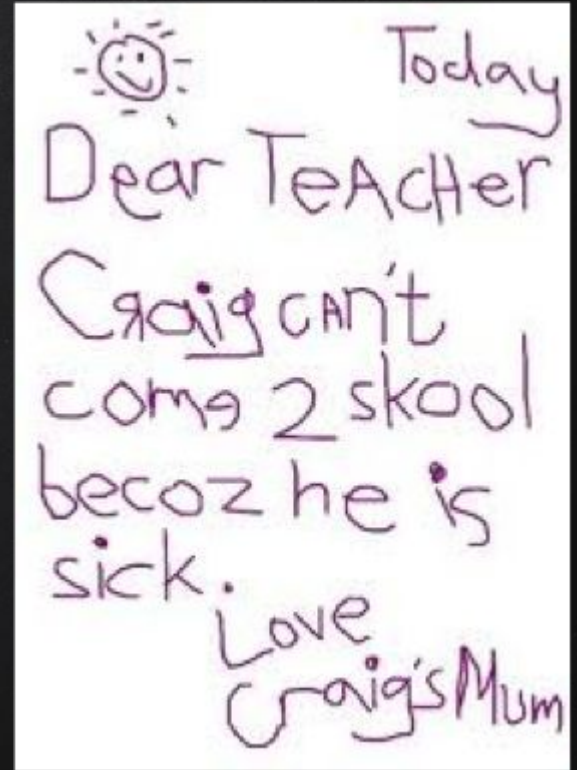 Today
Dear TeAcHer
Craig cAn't
come 2 skool
becoz he is
sick.
Love
Craig's Mum